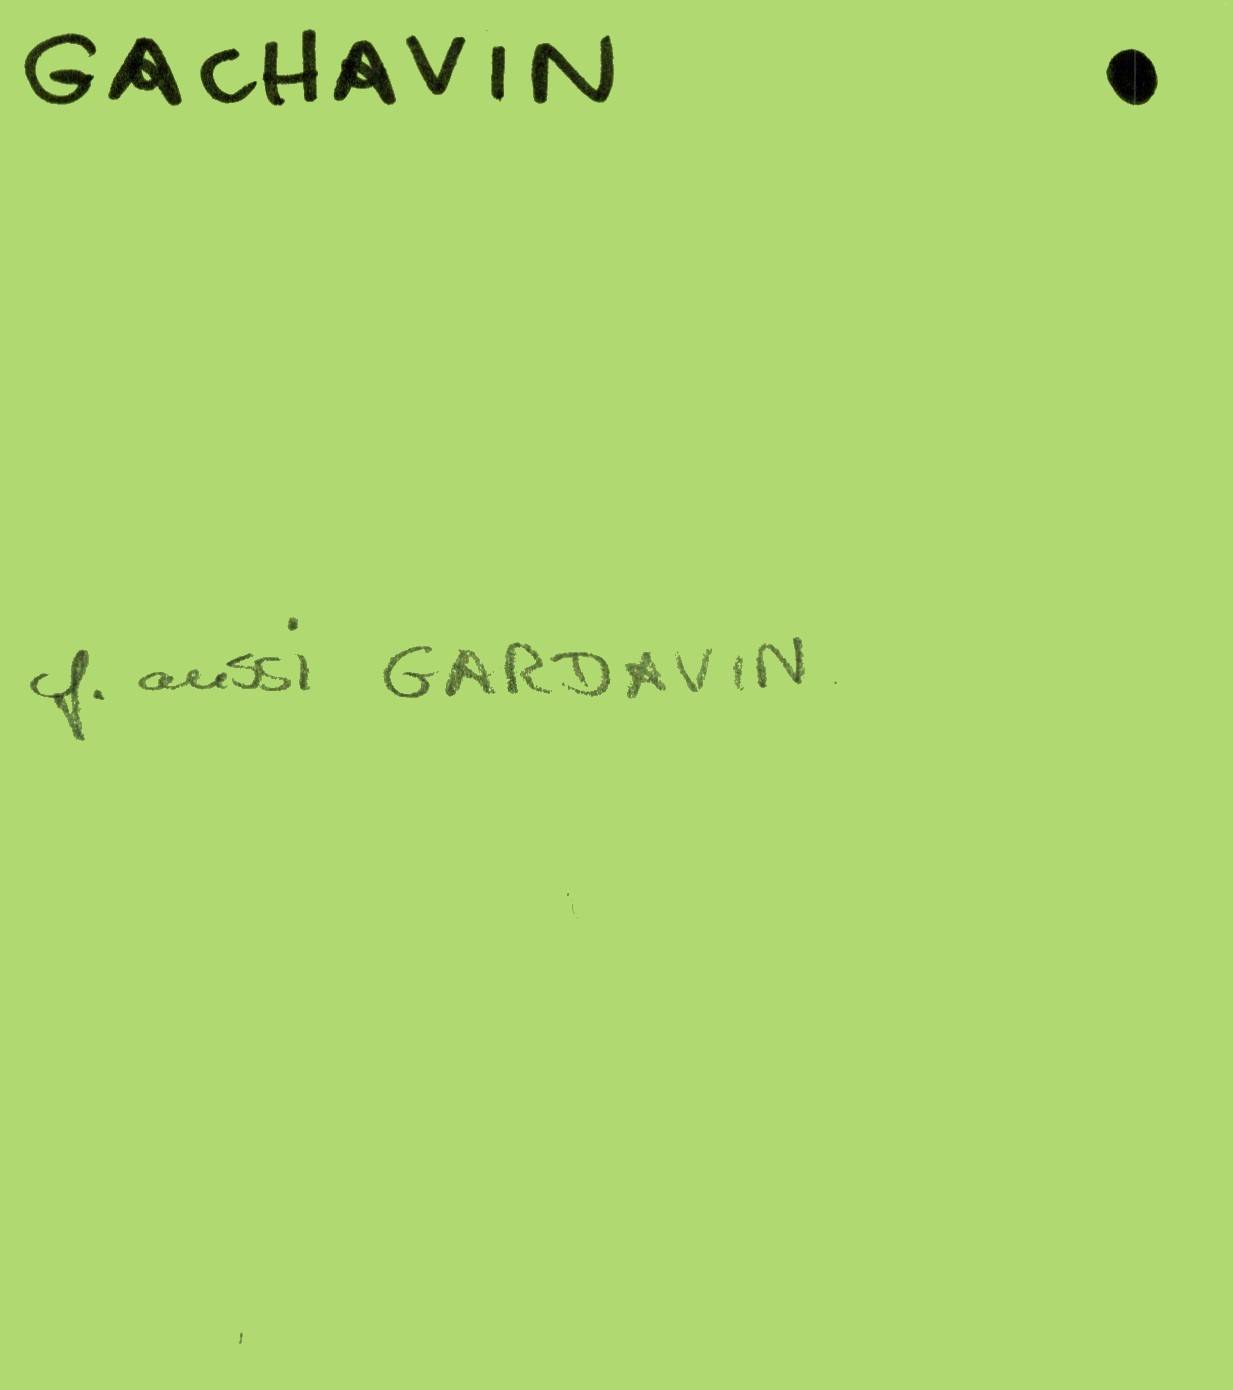 GACHAVIN
cf. aussi GARDAVIN.